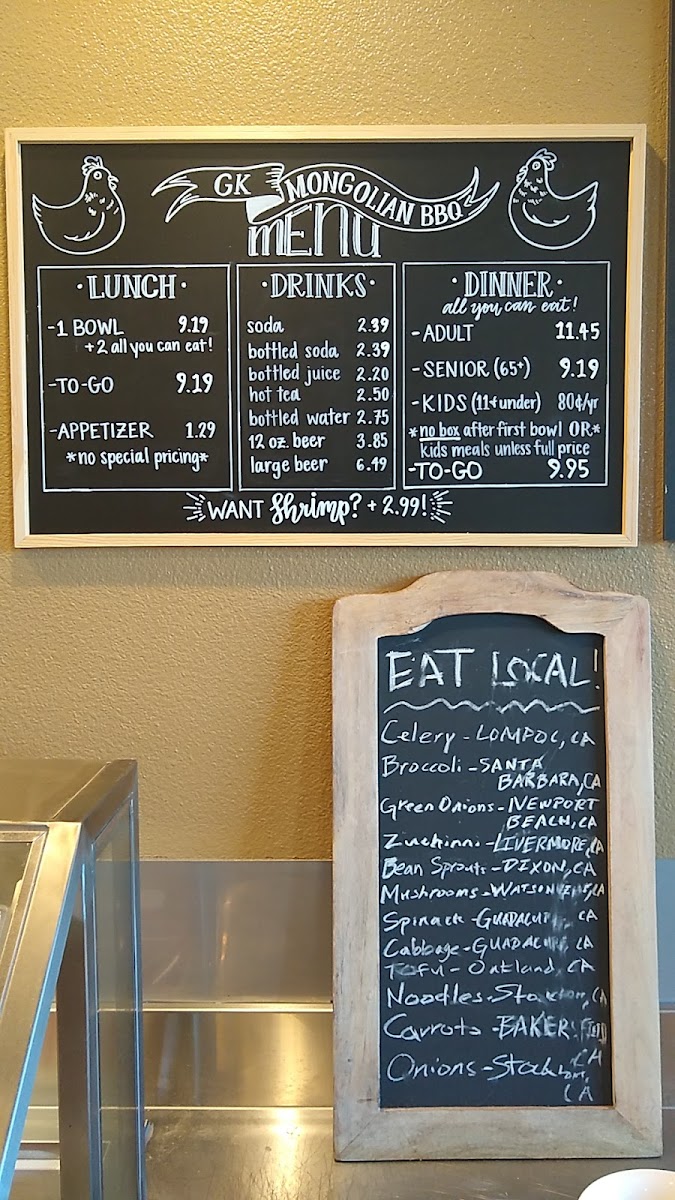 GK MONGOLIAN BBQ
MENU
·LUNCH·
-1 BOWL 9.19
+2 all you can eat!
-TO-GO 9.19
-APPETIZER 1.29
*no special pricing*
·DRINKS·
soda 2.39
bottled soda 2.39
bottled juice 2.20
hot tea 2.50
bottled water 2.75
12 oz. beer 3.85
large beer 6.49
·DINNER·
all you can eat!
-ADULT 11.45
-SENIOR (65+) 9.19
-KIDS (11 & under) 80¢/yr
*no box after first bowl OR*
kids meals unless full price
-TO-GO 9.95
WANT Shrimp? + 2.99!
EAT LOCAL!
Celery - LOMPOC, CA
Broccoli - SANTA
BARBARA, CA
Green Onions - NEWPORT
BEACH, CA
Zuchinni - LIVERMORE, CA
Bean Sprouts - DIXON, CA
Mushrooms - WATSONVILLE, CA
Spinach - GUADALUPE, CA
Cabbage - GUADALUPE, CA
TOFU - Oakland, CA
Noodles - Stockton, CA
Carrots - BAKERSFIELD
CA
Onions - Stockton,
CA